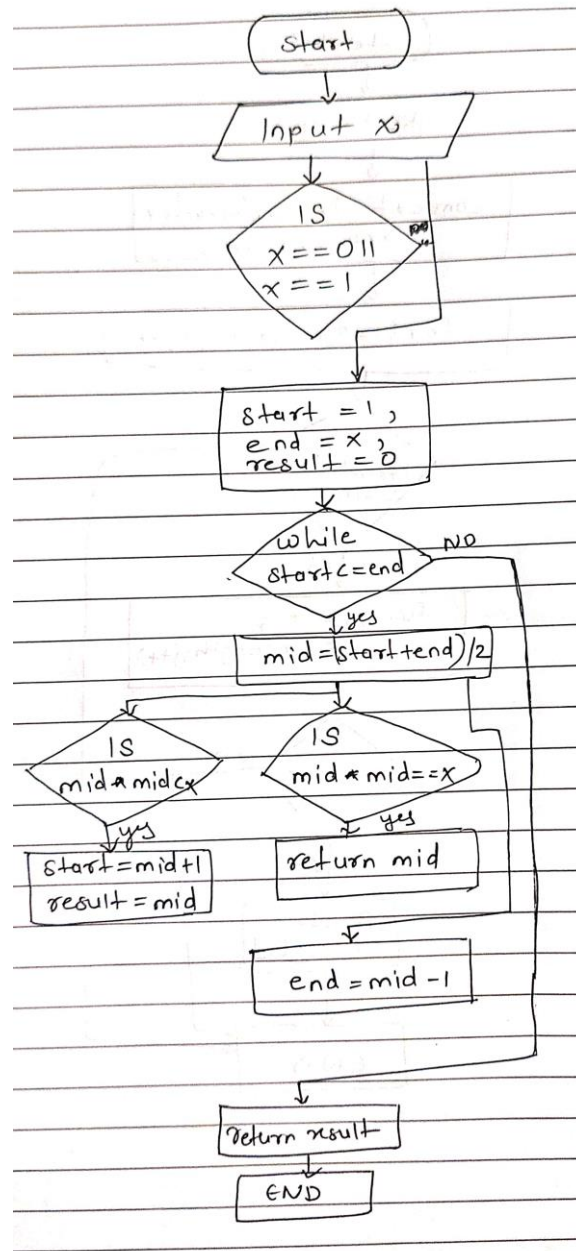 Start
Input x
IS
x==0||
x==1
start = 1,
end = x,
result = 0
while
start<=end
NO
yes
mid=(start+end)/2
IS
mid*mid<x
IS
mid*mid==x
yes
yes
start=mid+1
result=mid
return mid
end=mid-1
return result
END